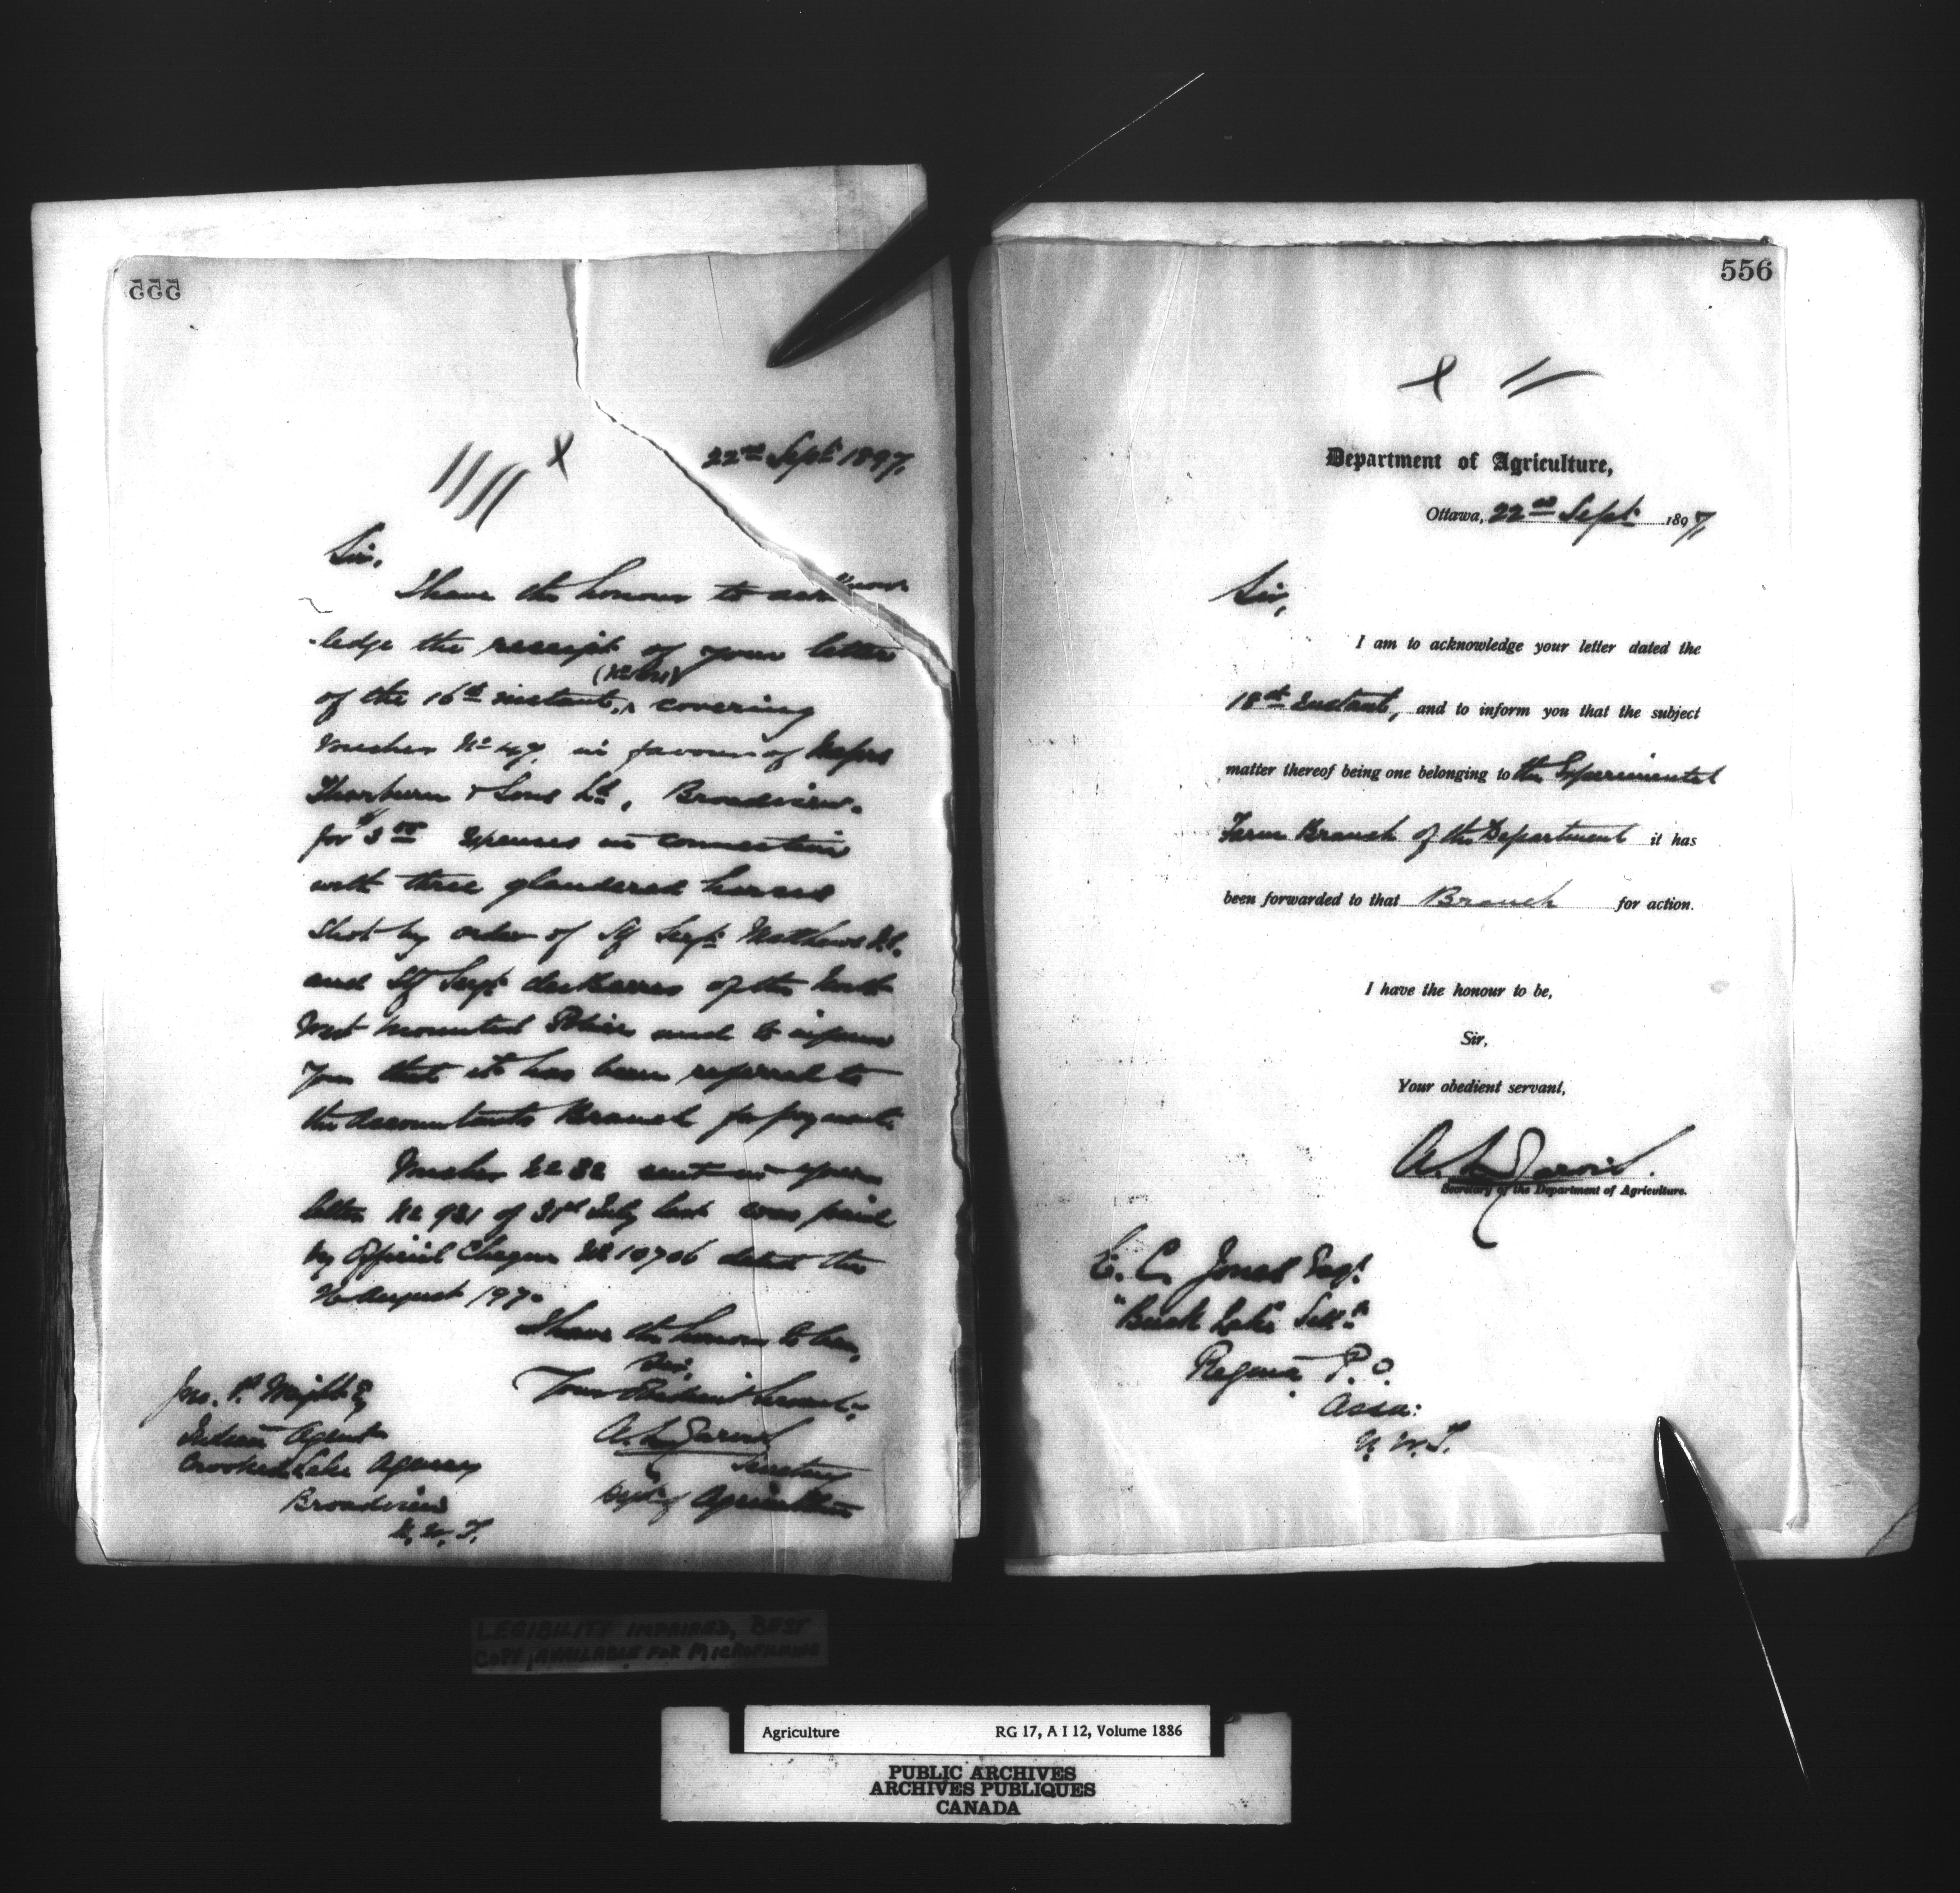 555
22nd Sept 1897.
Sir,
I have the honour to acknow-
-ledge the receipt of your letter
of the 16th instant, covering
Voucher No 47, in favour of Messrs
Thorburn & Sons Ld, Broadview.
for $3.00 expenses in connection
with three glandered horses
shot by order of Sf Sergt Matthews
and Sf Sergt desBarres of the North
West Mounted Police and to inform
you that it has been referred to
the Accountants Branch for payment.
Voucher No 32 sent in your
letter No 931 of 31st July last was paid
by Official Cheque No 10706 dated the
August 1897.
I have the honour to be,
Sir,
Your Obedient Servant,
A. L. Jarvis
Secretary
Dept of Agriculture
Jno. P. Wright E
Indian Agent
Crooked Lake Agency
Broadview
N. W. T.
556
Department of Agriculture,
Ottawa, 22nd Sept 1897,
Sir,
I am to acknowledge your letter dated the
18th Instant, and to inform you that the subject
matter thereof being one belonging to the Experimental
Farm Branch of the Department it has
been forwarded to that Branch for action.
I have the honour to be,
Sir,
Your obedient servant,
A. L. Jarvis.
Secretary of the Department of Agriculture.
E. C. Jones Esqr.
"Buck Lake" Settt
Regina P.O.
Assa:
N. W. T.
LEGIBILITY IMPAIRED, BEST
COPY AVAILABLE FOR MICROFILMING
Agriculture RG 17, A I 12, Volume 1886
PUBLIC ARCHIVES
ARCHIVES PUBLIQUES
CANADA